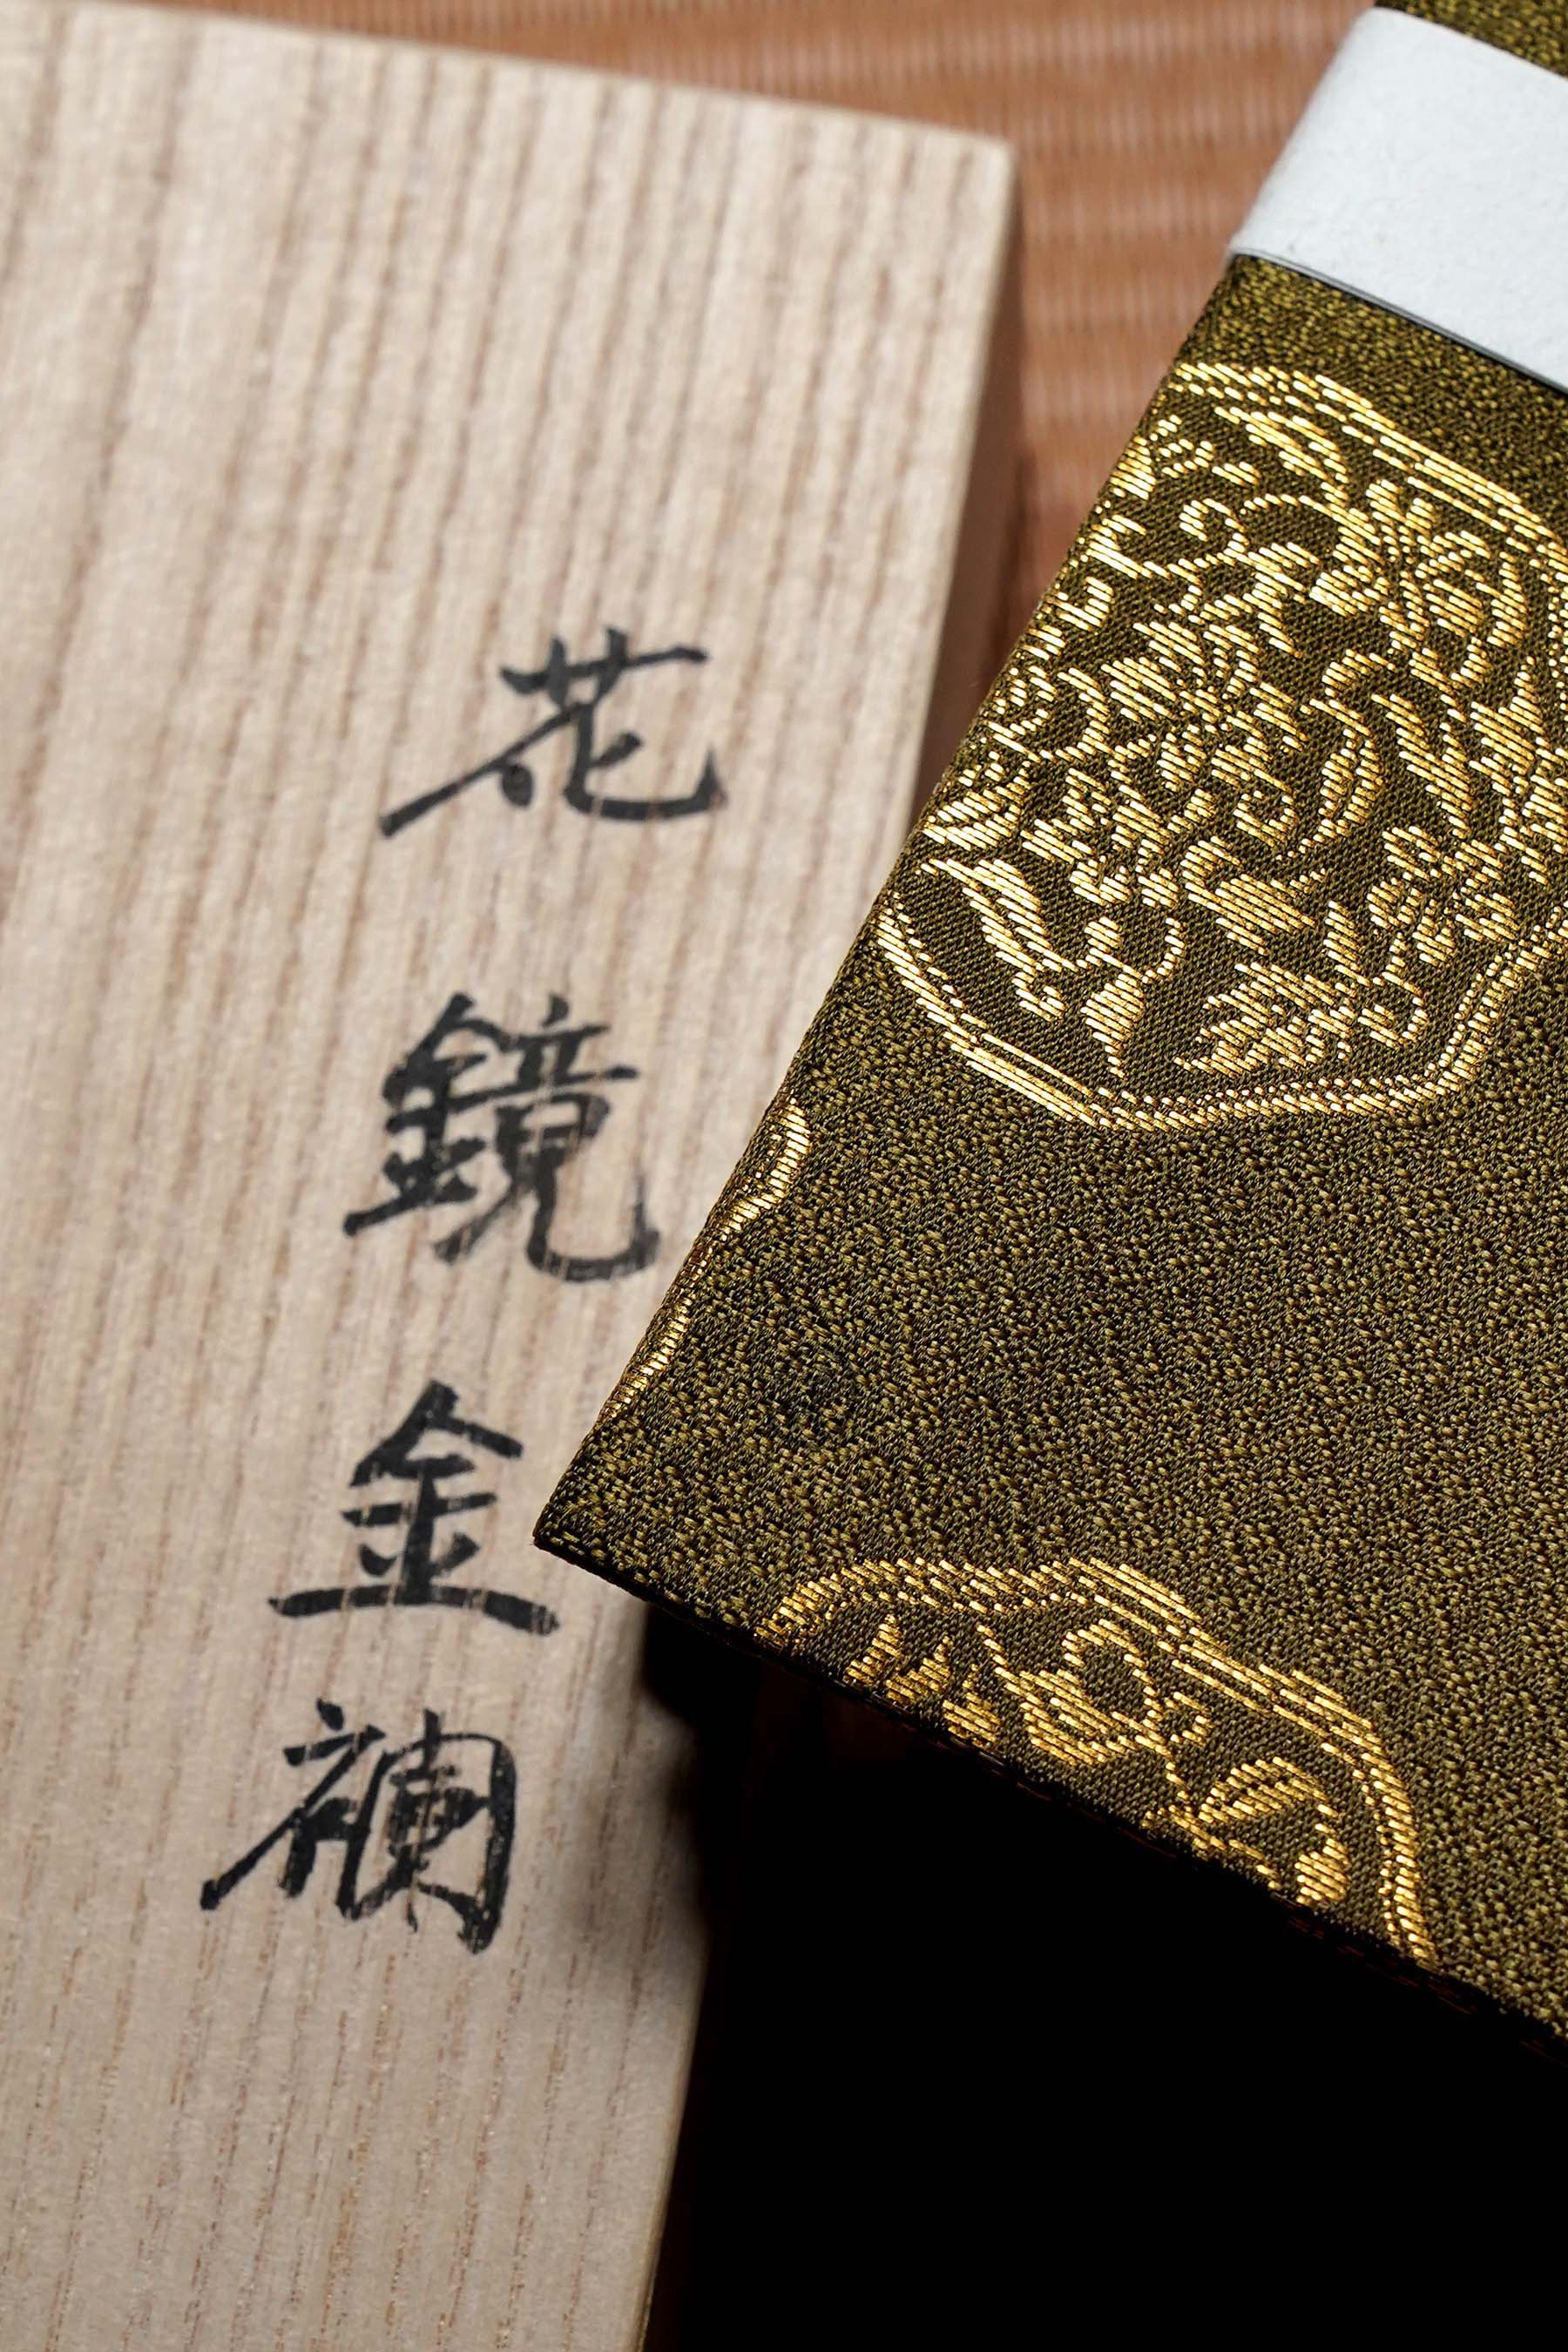 花鏡金襴